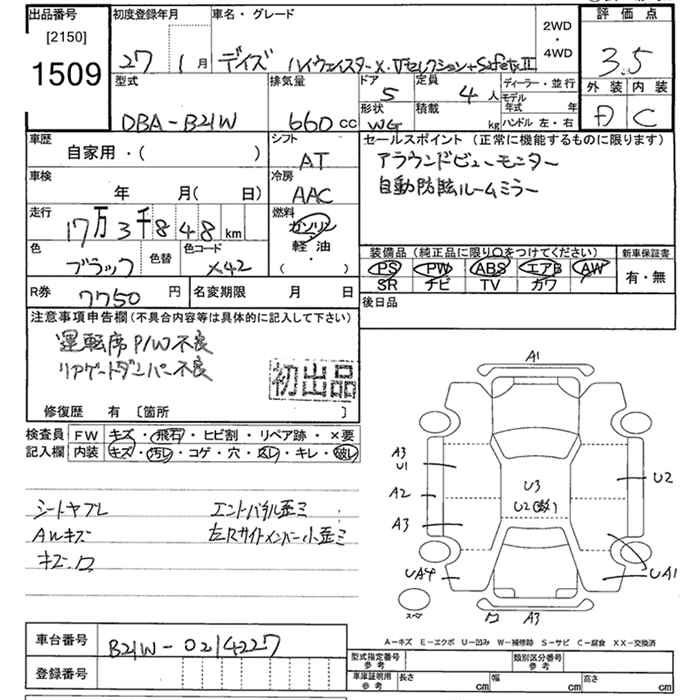 出品番号 初度登録年月 車名・グレード 2WD・4WD 評価点
[2150]
1509
27 1月 デイズ ハイウェイスターX・Vセレクション+SafetyII 3.5
型式 排気量 ドア 定員 ディーラー・並行 外装 内装
DBA-B21W 660cc 5 4人 モデル年式 年
形状 積載 kg ハンドル 左・右 C
WG
車歴 シフト セールスポイント (正常に機能するものに限ります)
自家用・( ) AT アラウンドビューモニター
車検 冷房 自動防眩ルームミラー
年 月( 日) AAC
走行 燃料
17万3千848km ガソリン・軽油・( )
色 色替 色コード 装備品 (純正品に限り○をつけてください) 新車保証書
ブラック X42 PS・PW・ABS・エアB・AW 有・無
SR ナビ TV カワ
R券 7750円 名変期限 月 日 後日品
注意事項申告欄(不具合内容等は具体的に記入して下さい)
運転席P/W不良
リアゲートダンパー不良
初出品
修復歴 有 [箇所 ]
検査員記入欄 FW キズ・飛石・ヒビ割・リペア跡・×要
内装 キズ・汚レ・コゲ・穴・スレ・キレ・破レ
シートヤブレ エンドパネル歪ミ
AWキズ 左Rサイドメンバー小歪ミ
キズ・凹
A1
A3
U1
A2
A3
U3
U2(数)
U2
UA4
UA1
スペア
凹 A3
A-キズ E-エクボ U-凹み W-補修跡 S-サビ C-腐食 XX-交換済
車台番号 B21W-0214227
登録番号
型式指定番号 参考 類別区分番号 参考
車庫証明用 参考 長さ cm 幅 cm 高さ cm